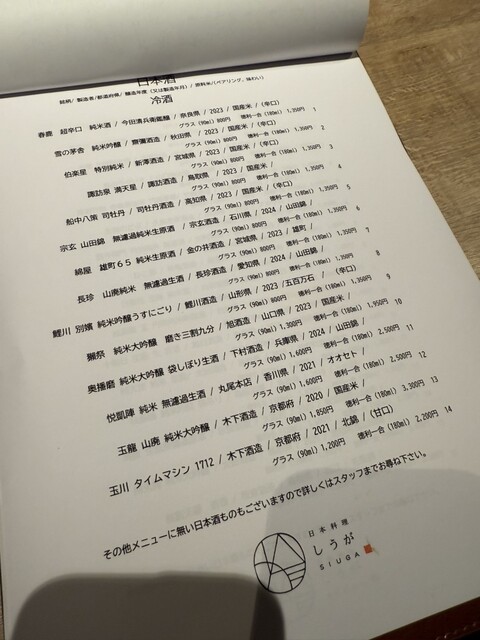 日本酒
銘柄/ 製造者/都道府県/ 醸造年度（又は製造年月）/ 原料米/（ペアリング、味わい）
冷酒
春鹿 超辛口 純米酒 / 今田清兵衛醸 / 奈良県 / 2023 / 国産米 / （辛口）
グラス（90ml）800円 徳利一合（180ml）1,350円 1
雪の茅舎 純米吟醸 / 齋彌酒造 / 秋田県 / 2023 / 国産米 / （辛口）
グラス（90ml）800円 徳利一合（180ml）1,350円 2
伯楽星 特別純米 / 新澤酒造 / 宮城県 / 2023 / 国産米 /
グラス（90ml）800円 徳利一合（180ml）1,350円 3
諏訪泉 満天星 / 諏訪酒造 / 鳥取県 / 2023 / 国産米 /
グラス（90ml）800円 徳利一合（180ml）1,350円 4
船中八策 司牡丹 / 司牡丹酒造 / 高知県 / 2023 / 国産米 / （辛口）
グラス（90ml）800円 徳利一合（180ml）1,350円 5
宗玄 山田錦 無濾過純米生原酒 / 宗玄酒造 / 石川県 / 2024 / 山田錦 /
グラス（90ml）800円 徳利一合（180ml）1,350円 6
綿屋 雄町６５ 純米生原酒 / 金の井酒造 / 宮城県 / 2023 / 雄町 /
グラス（90ml）800円 徳利一合（180ml）1,350円 7
長珍 山廃純米 無濾過生酒 / 長珍酒造 / 愛知県 / 2024 / 山田錦 /
グラス（90ml）800円 徳利一合（180ml）1,350円 8
鯉川 別嬢 純米吟醸うすにごり / 鯉川酒造 / 山形県 / 2023 /五百万石 / （辛口）
グラス（90ml）800円 徳利一合（180ml）1,350円 9
獺祭 純米大吟醸 磨き三割九分 / 旭酒造 / 山口県 / 2023 / 国産米 /
グラス（90ml）1,300円 徳利一合（180ml）1,950円 10
奥播磨 純米大吟醸 袋しぼり生酒 / 下村酒造 / 兵庫県 / 2024 / 山田錦 /
グラス（90ml）1,600円 徳利一合（180ml）2,500円 11
悦凱陣 純米 無濾過生酒 / 丸尾本店 / 香川県 / 2021 / オオセト /
グラス（90ml）1,600円 徳利一合（180ml）2,500円 12
玉龍 山廃 純米大吟醸 / 木下酒造 / 京都府 / 2020 / 国産米 /
グラス（90ml）1,850円 徳利一合（180ml）3,300円 13
玉川 タイムマシン 1712 / 木下酒造 / 京都府 / 2021 / 北錦 / （甘口）
グラス（90ml）1,200円 徳利一合（180ml）2,200円 14
その他メニューに無い日本酒ものもございますので詳しくはスタッフまでお尋ね下さい。
日本料理
しうが
SIUGA